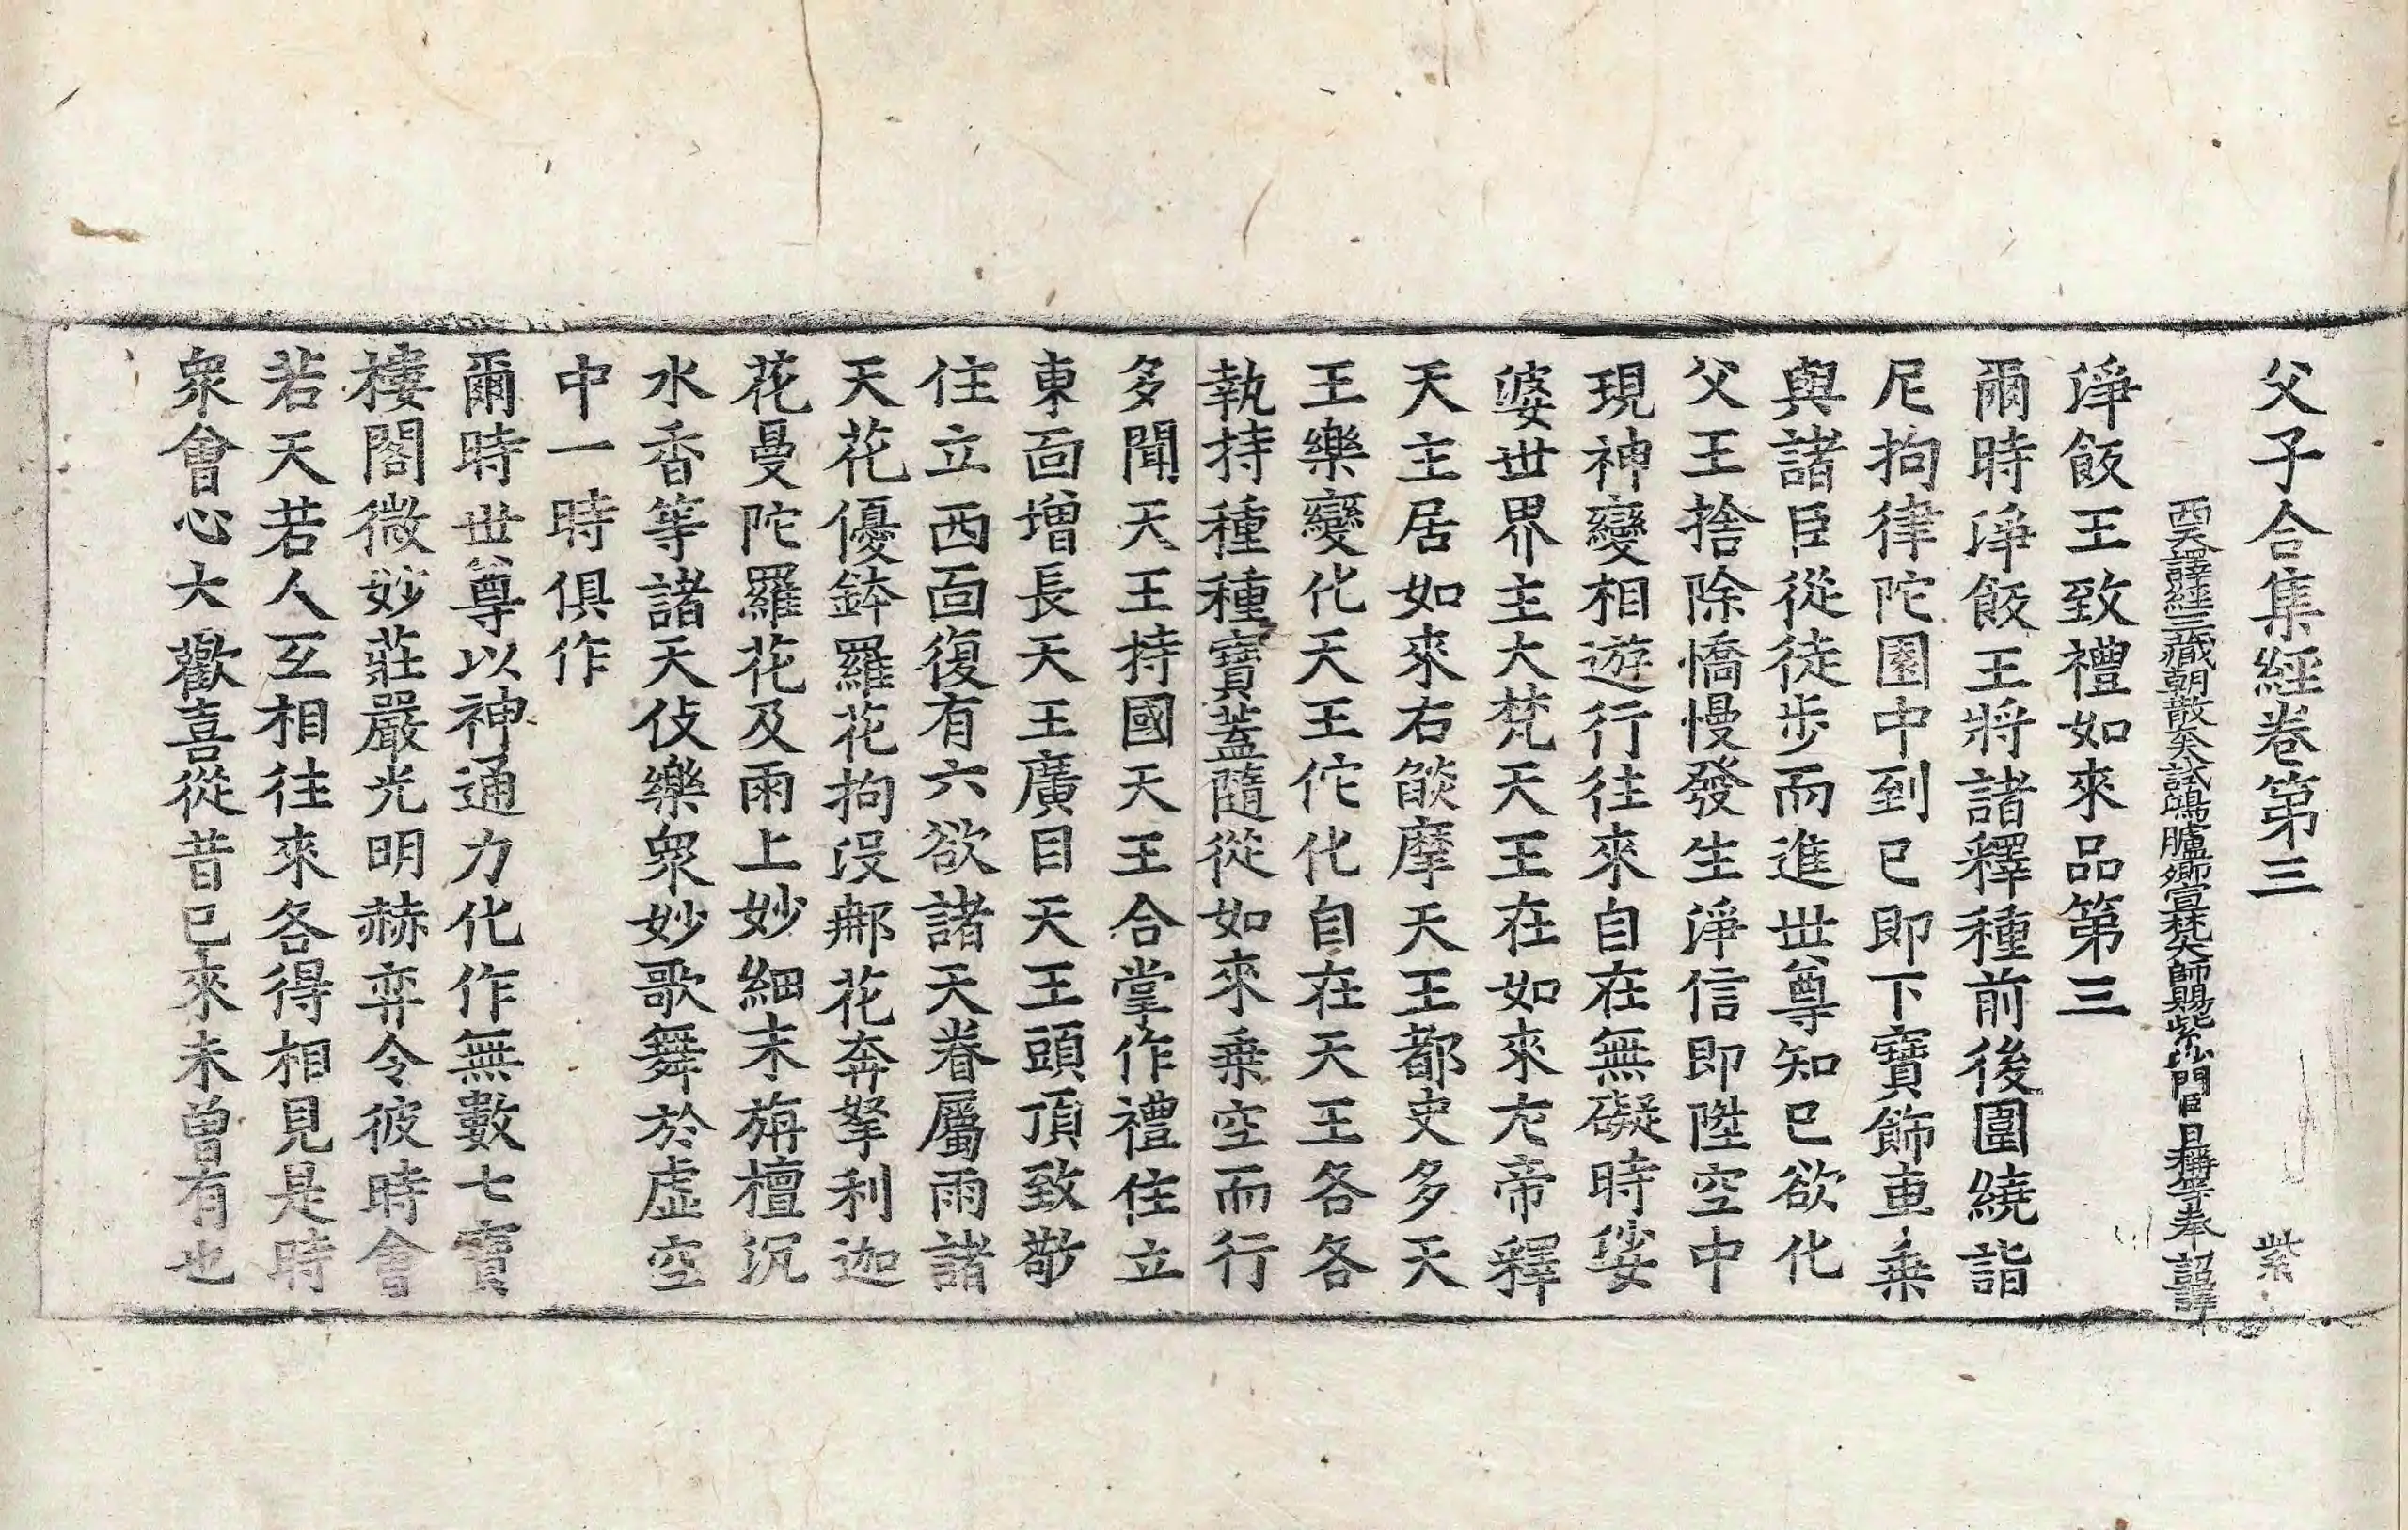 父子合集經卷第三 紫
西天譯經三藏朝散大夫試鴻臚卿宣梵大師賜紫沙門臣日稱等奉 詔譯
淨飯王致禮如來品第三
爾時淨飯王將諸釋種前後圍繞詣
尼拘律陀園中到已即下寶飾車乗
與諸臣從徒步而進世尊知已欲化
父王捨除憍慢發生淨信即陞空中
現神變相遊行往來自在無礙時娑
婆世界主大梵天王在如來左帝釋
天主居如來右燄摩天王都史多天
王樂變化天王佗化自在天王各各
執持種種寶蓋隨從如來乗空而行
多聞天王持國天王合掌作禮住立
東面增長天王廣目天王頭頂致敬
住立西面復有六欲諸天眷屬雨諸
天花優鉢羅花拘沒那花奔拏利迦
花曼陀羅花及雨上妙細末栴檀沉
水香等諸天伎樂眾妙歌舞於虛空
中一時俱作
爾時世尊以神通力化作無數七寶
樓閣微妙莊嚴光明赫弈令彼時會
若天若人互相往來各得相見是時
眾會心大歡喜從昔已來未曾有也